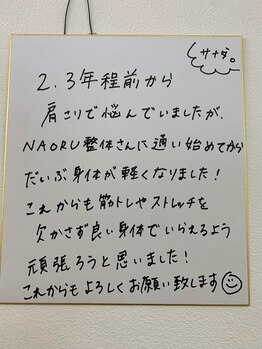 サナダ。
2、3年程前から
肩こりで悩んでいましたが、
NAORU整体さんに通い始めてから
だいぶ身体が軽くなりました!
これからも筋トレやストレッチを
欠かさず良い身体でいられるよう
頑張ろうと思いました!
これからもよろしくお願い致します